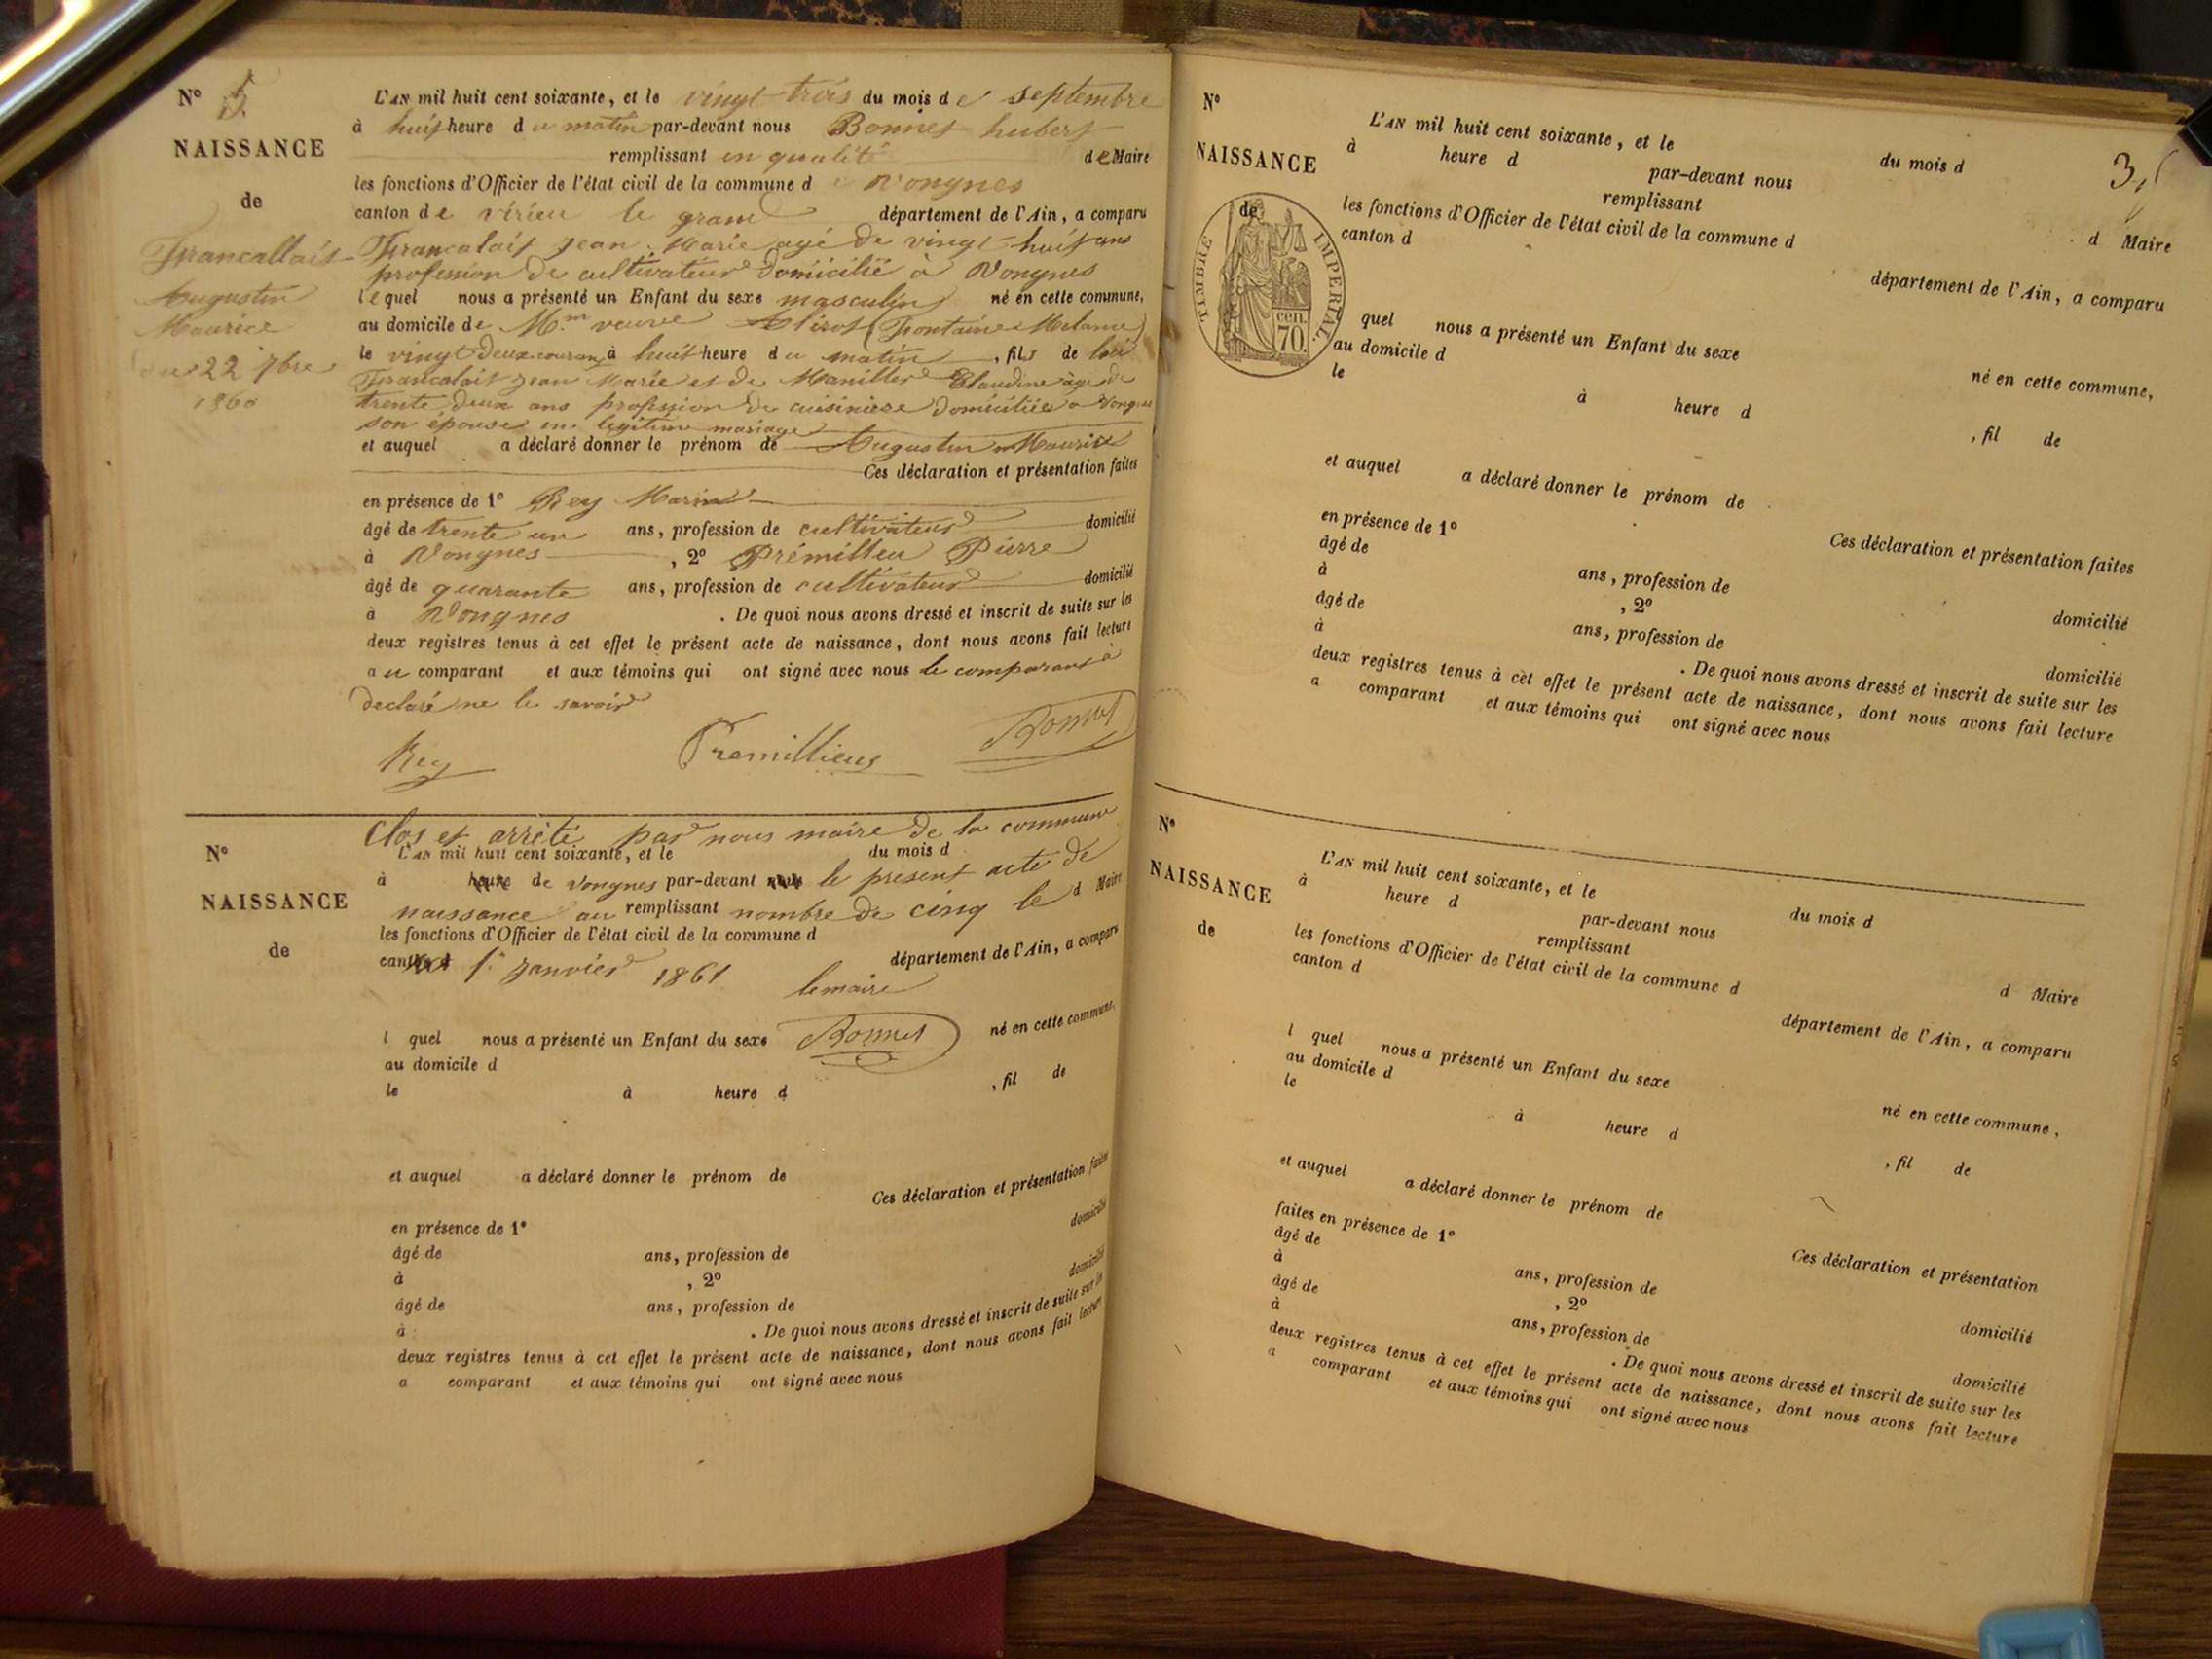 N° 5.
NAISSANCE
de
Francallais
Augustin
Maurice
du 22 7bre
1860
L'AN mil huit cent soixante, et le vingt trois du mois de septembre
à huit heure du matin par-devant nous Bonnet hubert
remplissant en qualité de Maire
les fonctions d'Officier de l'état civil de la commune de Vongnes
canton de virieu le grand département de l'Ain, a comparu
Francalait jean Marie agé de vingt-huit ans
profession de cultivateur domicilié à Vongnes
lequel nous a présenté un Enfant du sexe masculin né en cette commune,
au domicile de M.me veuve (Fontaine Melanie)
le vingt deux courant à huit heure du matin, fils de lui
Francalait jean Marie et de Claudine âgé de
trente deux ans profession de cuisiniere domiciliée a Vongnes
son épouse en legitime mariage
et auquel a déclaré donner le prénom de Augustin Maurice
Ces déclaration et présentation faites
en présence de 1° Rey Marin
âgé de trente un ans, profession de cultivateur domicilié
à Vongnes, 2° Prémillieu Pierre
âgé de quarante ans, profession de cultivateur domicilié
à Vongnes. De quoi nous avons dressé et inscrit de suite sur les
deux registres tenus à cet effet le présent acte de naissance, dont nous avons fait lecture
au comparant et aux témoins qui ont signé avec nous le comparant à
declaré ne le savoir
Rey Premillieux Bonnet
Clos et arrêté par nous maire de la commune
N° L'AN mil huit cent soixante, et le du mois d
à heure de Vongnes par-devant nous le présent acte de
NAISSANCE
naissance au remplissant nombre de cinq le d Maire
les fonctions d'Officier de l'état civil de la commune d
de
canton d 1er janvier 1861 le maire département de l'Ain, a comparu
l quel nous a présenté un Enfant du sexe Bonnet né en cette commune,
au domicile d
le à heure d , fil de
et auquel a déclaré donner le prénom de
Ces déclaration et présentation faites
en présence de 1° domicilié
âgé de ans, profession de
à , 2° domicilié
âgé de ans, profession de
à . De quoi nous avons dressé et inscrit de suite sur les
deux registres tenus à cet effet le présent acte de naissance, dont nous avons fait lecture
a comparant et aux témoins qui ont signé avec nous
N°
NAISSANCE
de
TIMBRE IMPERIAL
cen. 70.
L'AN mil huit cent soixante, et le du mois d
à heure d par-devant nous
remplissant d Maire
les fonctions d'Officier de l'état civil de la commune d
canton d département de l'Ain, a comparu
quel nous a présenté un Enfant du sexe né en cette commune,
au domicile d
le à heure d , fil de
et auquel a déclaré donner le prénom de
Ces déclaration et présentation faites
en présence de 1°
âgé de ans, profession de domicilié
à , 2°
âgé de ans, profession de domicilié
à . De quoi nous avons dressé et inscrit de suite sur les
deux registres tenus à cet effet le présent acte de naissance, dont nous avons fait lecture
a comparant et aux témoins qui ont signé avec nous
N°
NAISSANCE
de
L'AN mil huit cent soixante, et le du mois d
à heure d par-devant nous
remplissant d Maire
les fonctions d'Officier de l'état civil de la commune d
canton d département de l'Ain, a comparu
l quel nous a présenté un Enfant du sexe né en cette commune,
au domicile d
le à heure d , fil de
et auquel a déclaré donner le prénom de
Ces déclaration et présentation
faites en présence de 1°
âgé de ans, profession de domicilié
à , 2°
âgé de ans, profession de domicilié
à . De quoi nous avons dressé et inscrit de suite sur les
deux registres tenus à cet effet le présent acte de naissance, dont nous avons fait lecture
a comparant et aux témoins qui ont signé avec nous